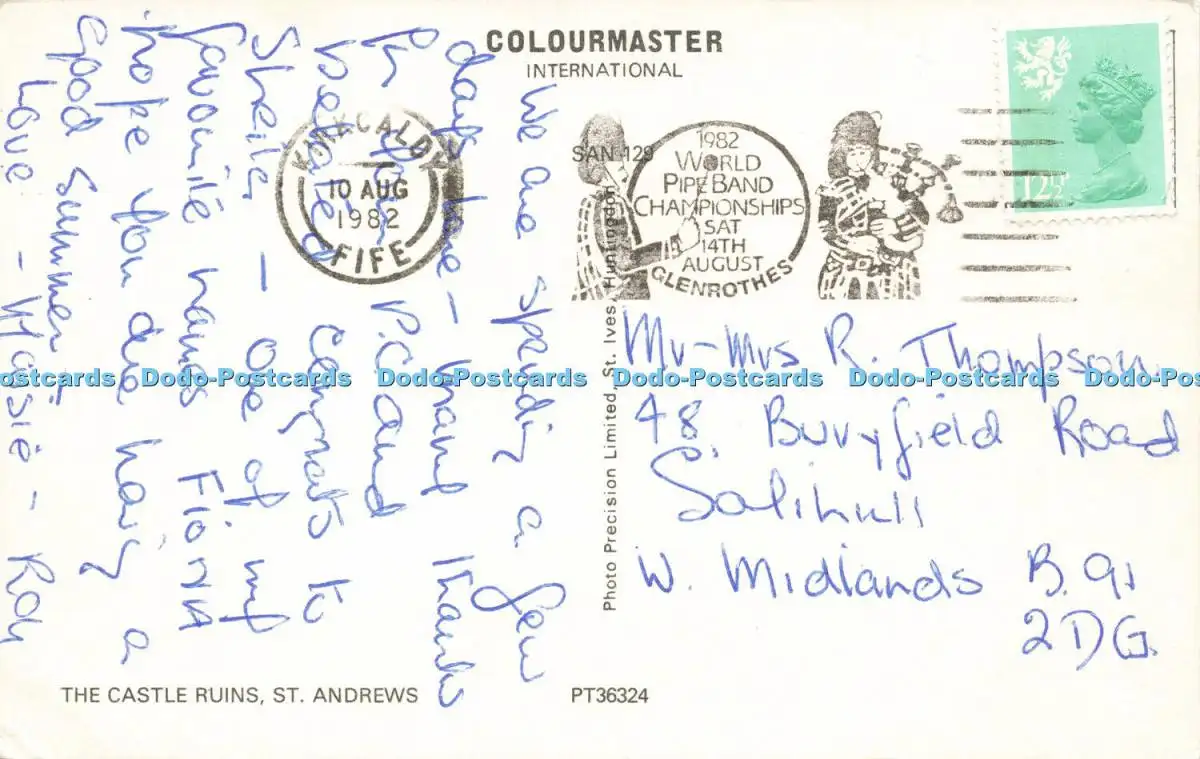 COLOURMASTER
INTERNATIONAL
We are spending a few
days here - many thanks
for your P.C. and
letter
congrats to
Sheila - one of my
favourite names FIONA
hope you are having a
good summer
Love - Maisie - Ron
KIRKCALDY
10 AUG
1982
FIFE
SAN 129
1982
WORLD
PIPE BAND
CHAMPIONSHIPS
SAT
14TH
AUGUST
GLENROTHES
12½P
Photo Precision Limited, St. Ives, Huntingdon
Mr-Mrs R. Thompson
48. Buryfield Road
Solihull
W. Midlands B.91
2DG.
Postcards Dodo-Postcards Dodo-Postcards Dodo-Postcards Dodo-Postcards Dodo-Postcards
THE CASTLE RUINS, ST. ANDREWS
PT36324